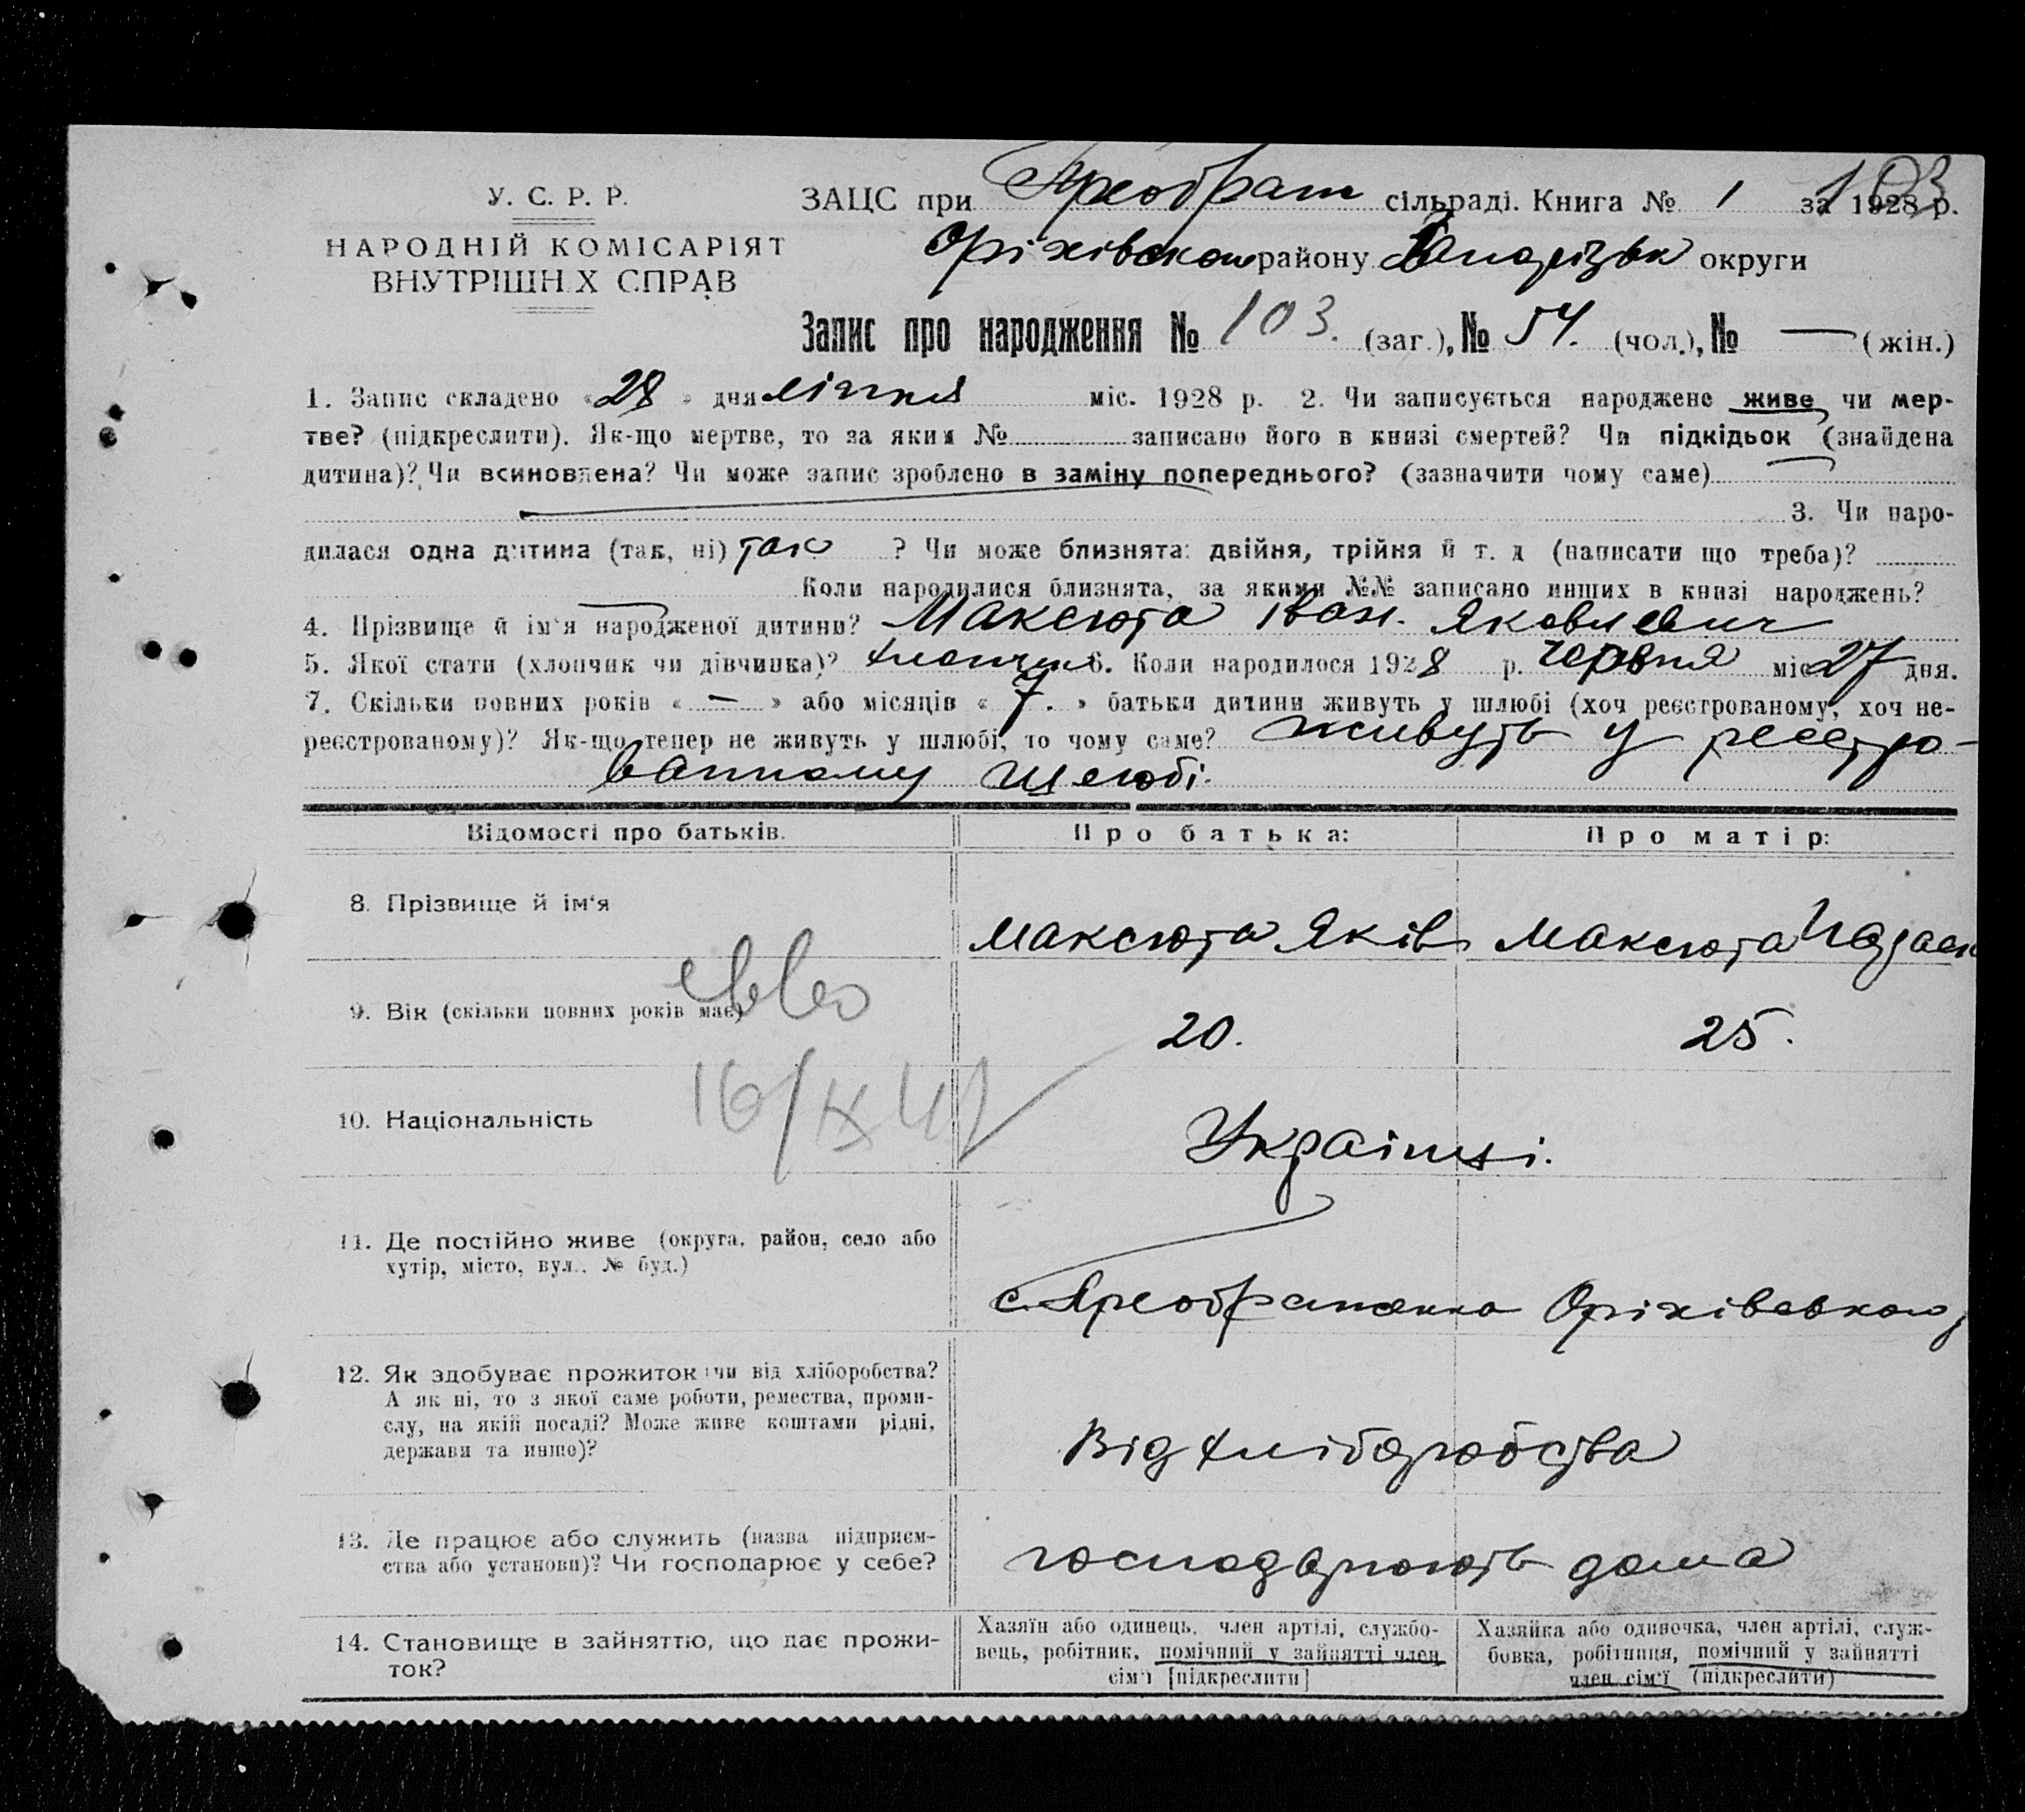 103
У. С. Р. Р.
НАРОДНІЙ КОМІСАРІЯТ
ВНУТРІШН Х СПРАВ
ЗАЦС при Преображ сільраді. Книга № 1 за 1928 р.
Оріхівського району Запорізьк округи
Запис про народження № 103. (заг.), № 54. (чол.), № — (жін.)
1. Запис складено «28» дня липня міс. 1928 р. 2. Чи записується народжене живе чи мер-
тве? (підкреслити). Як-що мертве, то за яким № записано його в книзі смертей? Чи підкідьок (знайдена
дитина)? Чи всиновлена? Чи може запис зроблено в заміну попереднього? (зазначити чому саме)
3. Чи наро-
дилася одна дитина (так, ні) так ? Чи може близнята: двійня, трійня й т. д (написати що треба)?
Коли народилися близнята, за якими №№ записано инших в книзі народжень?
4. Прізвище й ім'я народженої дитини? Максюта Іван. Яковлевич
5. Якої стати (хлопчик чи дівчинка)? хлопчик 6. Коли народилося 1928 р. червня міс 27 дня.
7. Скільки повних років « — » або місяців « 7. » батьки дитини живуть у шлюбі (хоч реєстрованому, хоч не-
реєстрованому)? Як-що тепер не живуть у шлюбі, то чому саме? живуть у реєстро-
ванному шлюбі.
Відомості про батьків.
Про батька:
Про матір:
8. Прізвище й ім'я
Максюта Яків
Максюта
9. Вік (скільки повних років має)
20.
25.
10. Національність
Українці.
11. Де постійно живе (округа, район, село або
хутір, місто, вул., № буд.)
с. Преображенка Оріхівського р
12. Як здобуває прожиток: чи від хліборобства?
А як ні, то з якої саме роботи, ремества, проми-
слу, на якій посаді? Може живе коштами рідні,
держави та инше)?
Від хліборобства
13. Де працює або служить (назва підприєм-
ства або установи)? Чи господарює у себе?
господарюють дома
14. Становище в зайняттю, що дає прожи-
ток?
Хазяїн або одинець, член артілі, службо-
вець, робітник, помічний у зайнятті член
сім'ї [підкреслити]
Хазяйка або одиночка, член артілі, служ-
бовка, робітниця, помічний у зайнятті
член сім'ї (підкреслити)